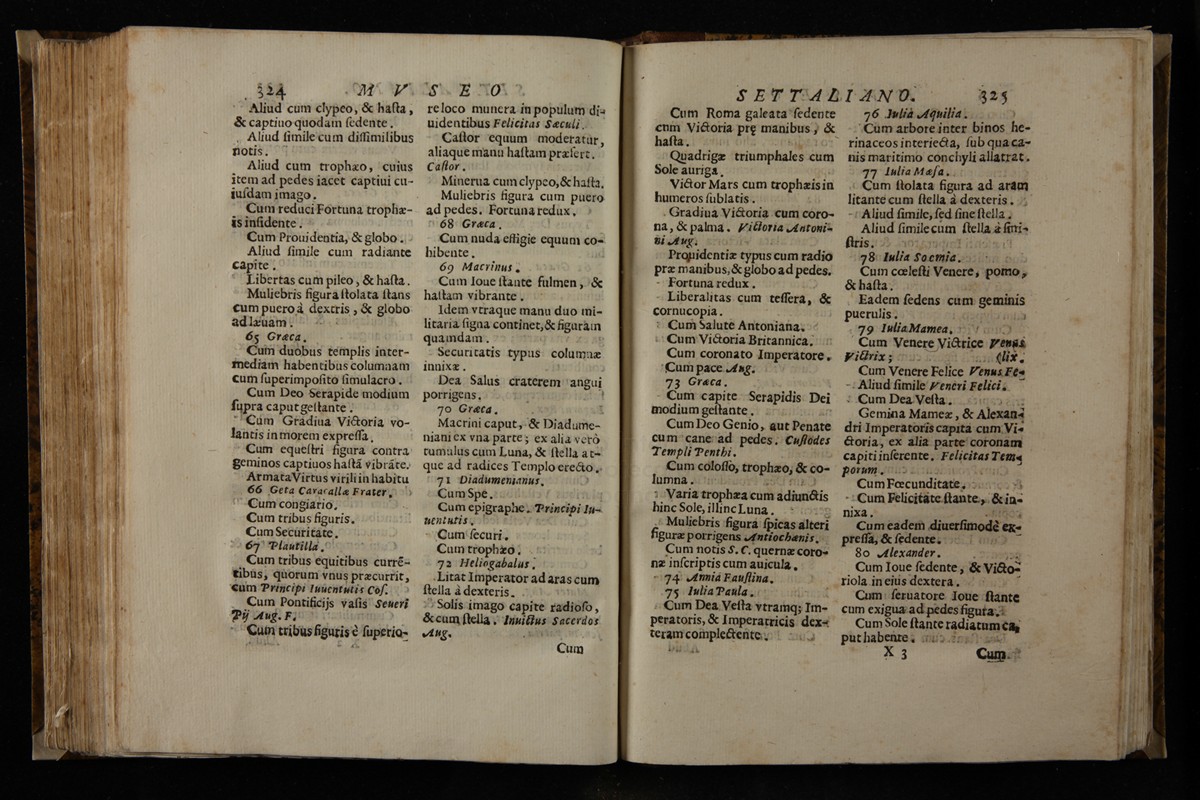 324 MVSEO
Aliud cum clypeo, & haſta,
& captiuo quodam ſedente.
Aliud ſimile cum diſſimilibus
notis.
Aliud cum trophæo, cuius
item ad pedes iacet captiui cu-
iuſdam imago.
Cum reduci Fortuna trophæ-
is inſidente.
Cum Prouidentia, & globo.
Aliud ſimile cum radiante
capite.
Libertas cum pileo, & haſta.
Muliebris figura ſtolata ſtans
cum puero à dextris, & globo
ad læuam.
65 Græca.
Cum duobus templis inter-
mediam habentibus columnam
cum ſuperimpoſito ſimulacro.
Cum Deo Serapide modium
ſupra caput geſtante.
Cum Gradiua Victoria vo-
lantis in morem expreſſa.
Cum equeſtri figura contra
geminos captiuos haſtā vibrāte.
Armata Virtus virili in habitu
66 Geta Caracallæ Frater.
Cum congiario.
Cum tribus figuris.
Cum Securitate.
67 Plautilla.
Cum tribus equitibus currē-
tibus, quorum vnus præcurrit,
cum Principi Iuuentutis Coſ.
Cum Pontificijs vaſis Seueri
Pij Aug. F.
Cum tribus figuris è ſuperio-
re loco munera in populum di-
uidentibus Felicitas Sæculi.
Caſtor equum moderatur,
aliaque manu haſtam præfert.
Caſtor.
Minerua cum clypeo, & haſta.
Muliebris figura cum puero
ad pedes. Fortuna redux.
68 Græca.
Cum nuda effigie equum co-
hibente.
69 Macrinus.
Cum Ioue ſtante fulmen, &
haſtam vibrante.
Idem vtraque manu duo mi-
litaria ſigna continet, & figuram
quamdam.
Securitatis typus columnæ
innixæ.
Dea Salus craterem angui
porrigens.
70 Græca.
Macrini caput, & Diadume-
niani ex vna parte; ex alia verò
tumulus cum Luna, & ſtella at-
que ad radices Templo erecto.
71 Diadumenianus.
Cum Spe.
Cum epigraphe. Principi Iu-
uentutis.
Cum ſecuri.
Cum trophæo.
72 Heliogabalus.
Litat Imperator ad aras cum
ſtella à dexteris.
Solis imago capite radioſo,
& cum ſtella. Inuictus Sacerdos
Aug.
Cum
SETTALIANO. 325
Cum Roma galeata ſedente
cum Victoria prę manibus, &
haſta.
Quadrigæ triumphales cum
Sole auriga.
Victor Mars cum trophæis in
humeros ſublatis.
Gradiua Victoria cum coro-
na, & palma. Victoria Antoni-
ni Aug.
Prouidentiæ typus cum radio
præ manibus, & globo ad pedes.
Fortuna redux.
Liberalitas cum teſſera, &
cornucopia.
Cum Salute Antoniana.
Cum Victoria Britannica.
Cum coronato Imperatore.
Cum pace Aug.
73 Græca.
Cum capite Serapidis Dei
modium geſtante.
Cum Deo Genio, aut Penate
cum cane ad pedes. Cuſtodes
Templi Penthi.
Cum coloſſo, trophæo, & co-
lumna.
Varia trophæa cum adiunctis
hinc Sole, illinc Luna.
Muliebris figura ſpicas alteri
figuræ porrigens Antiochænis.
Cum notis S. C. quernæ coro-
næ inſcriptis cum auicula.
74 Annia Fauſtina.
75 Iulia Paula.
Cum Dea Veſta vtramq; Im-
peratoris, & Imperatricis dex-
teram complectente.
76 Iulia Aquilia.
Cum arbore inter binos he-
rinaceos interiecta, ſub qua ca-
nis maritimo conchyli allatrat.
77 Iulia Mæſa.
Cum ſtolata figura ad aram
litante cum ſtella à dexteris.
Aliud ſimile, ſed ſine ſtella.
Aliud ſimile cum ſtella à ſini-
ſtris.
78 Iulia Soemia.
Cum cœleſti Venere, pomo,
& haſta.
Eadem ſedens cum geminis
puerulis.
79 Iulia Mamea.
Cum Venere Victrice Venus
Victrix; (lix.
Cum Venere Felice Venus Fe-
Aliud ſimile Veneri Felici.
Cum Dea Veſta.
Gemina Mameæ, & Alexan-
dri Imperatoris capita cum Vi-
ctoria, ex alia parte coronam
capiti inferente. Felicitas Tem-
porum.
Cum Fœcunditate.
Cum Felicitate ſtante, & in-
nixa.
Cum eadem diuerſimodè ex-
preſſa, & ſedente.
80 Alexander.
Cum Ioue ſedente, & Victo-
riola in eius dextera.
Cum ſeruatore Ioue ſtante
cum exigua ad pedes figura.
Cum Sole ſtante radiatum ca-
put habente.
X 3 Cum